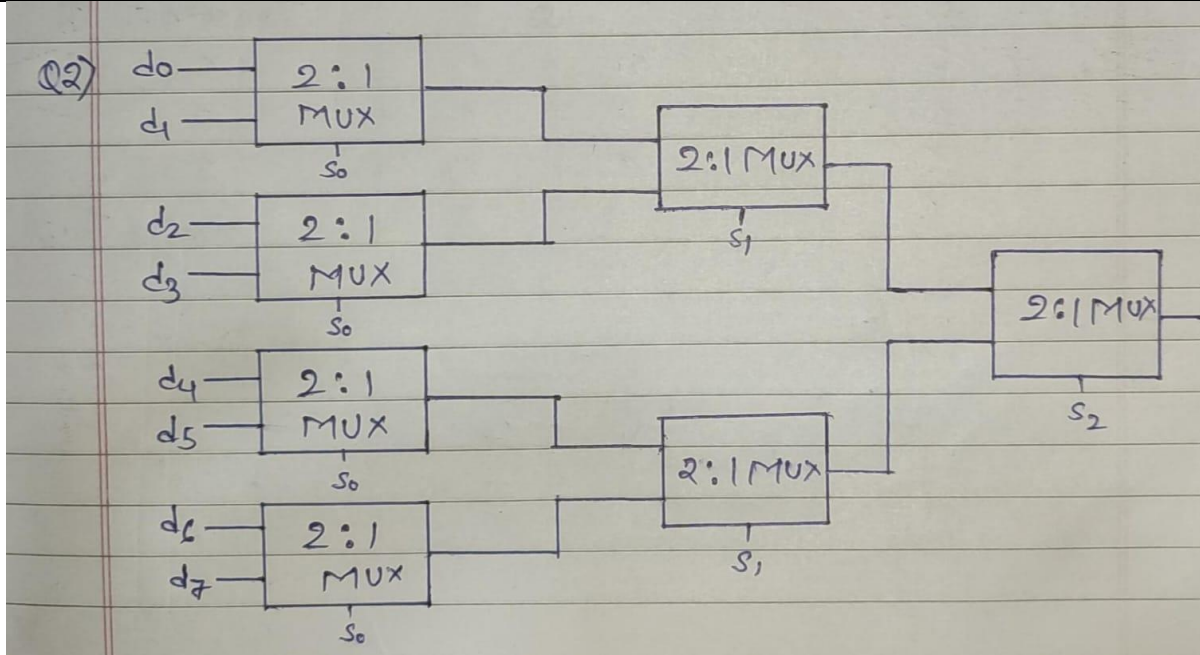 Q2)
d0
d1
2:1
MUX
S0
d2
d3
2:1
MUX
S0
2:1 MUX
S1
d4
d5
2:1
MUX
S0
d6
d7
2:1
MUX
S0
2:1 MUX
S1
2:1 MUX
S2